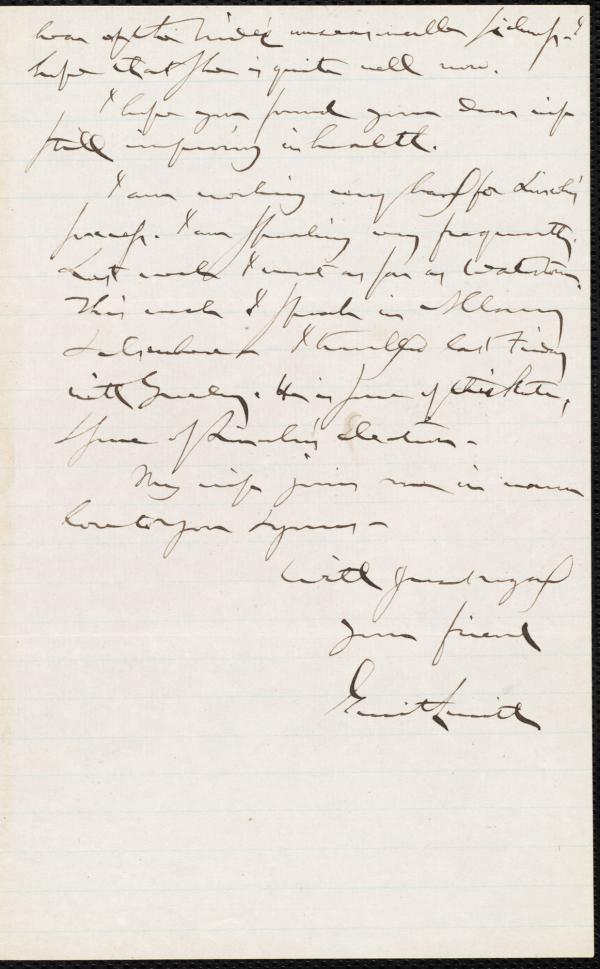 hear of the bride's unseasonable sickness. I
hope that she is quite well now.
I hope you found your dear wife
still improving in health.
I am working very hard for Lincoln's
success. I am speaking very frequently.
Last week I went as far as Watertown.
This week I speak in Albany
& elsewhere. I travelled last Friday
with Greeley. He is sure of this State,
& sure of Lincoln's election.
My wife joins me in warm
love to you & yours.
With great regard
your friend
Gerrit Smith